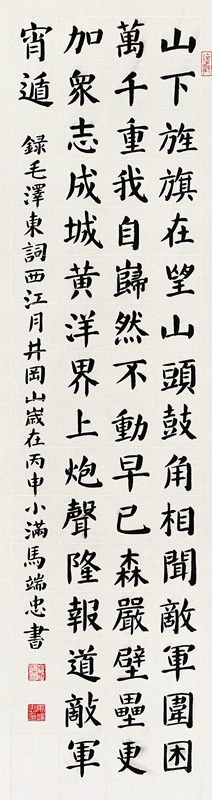 山下旌旗在望山頭鼓角相聞敵軍圍困
萬千重我自巋然不動早已森嚴壁壘更
加衆志成城黄洋界上炮聲隆報道敵軍
宵遁
録毛澤東詞西江月井岡山歲在丙申小滿馬端忠書